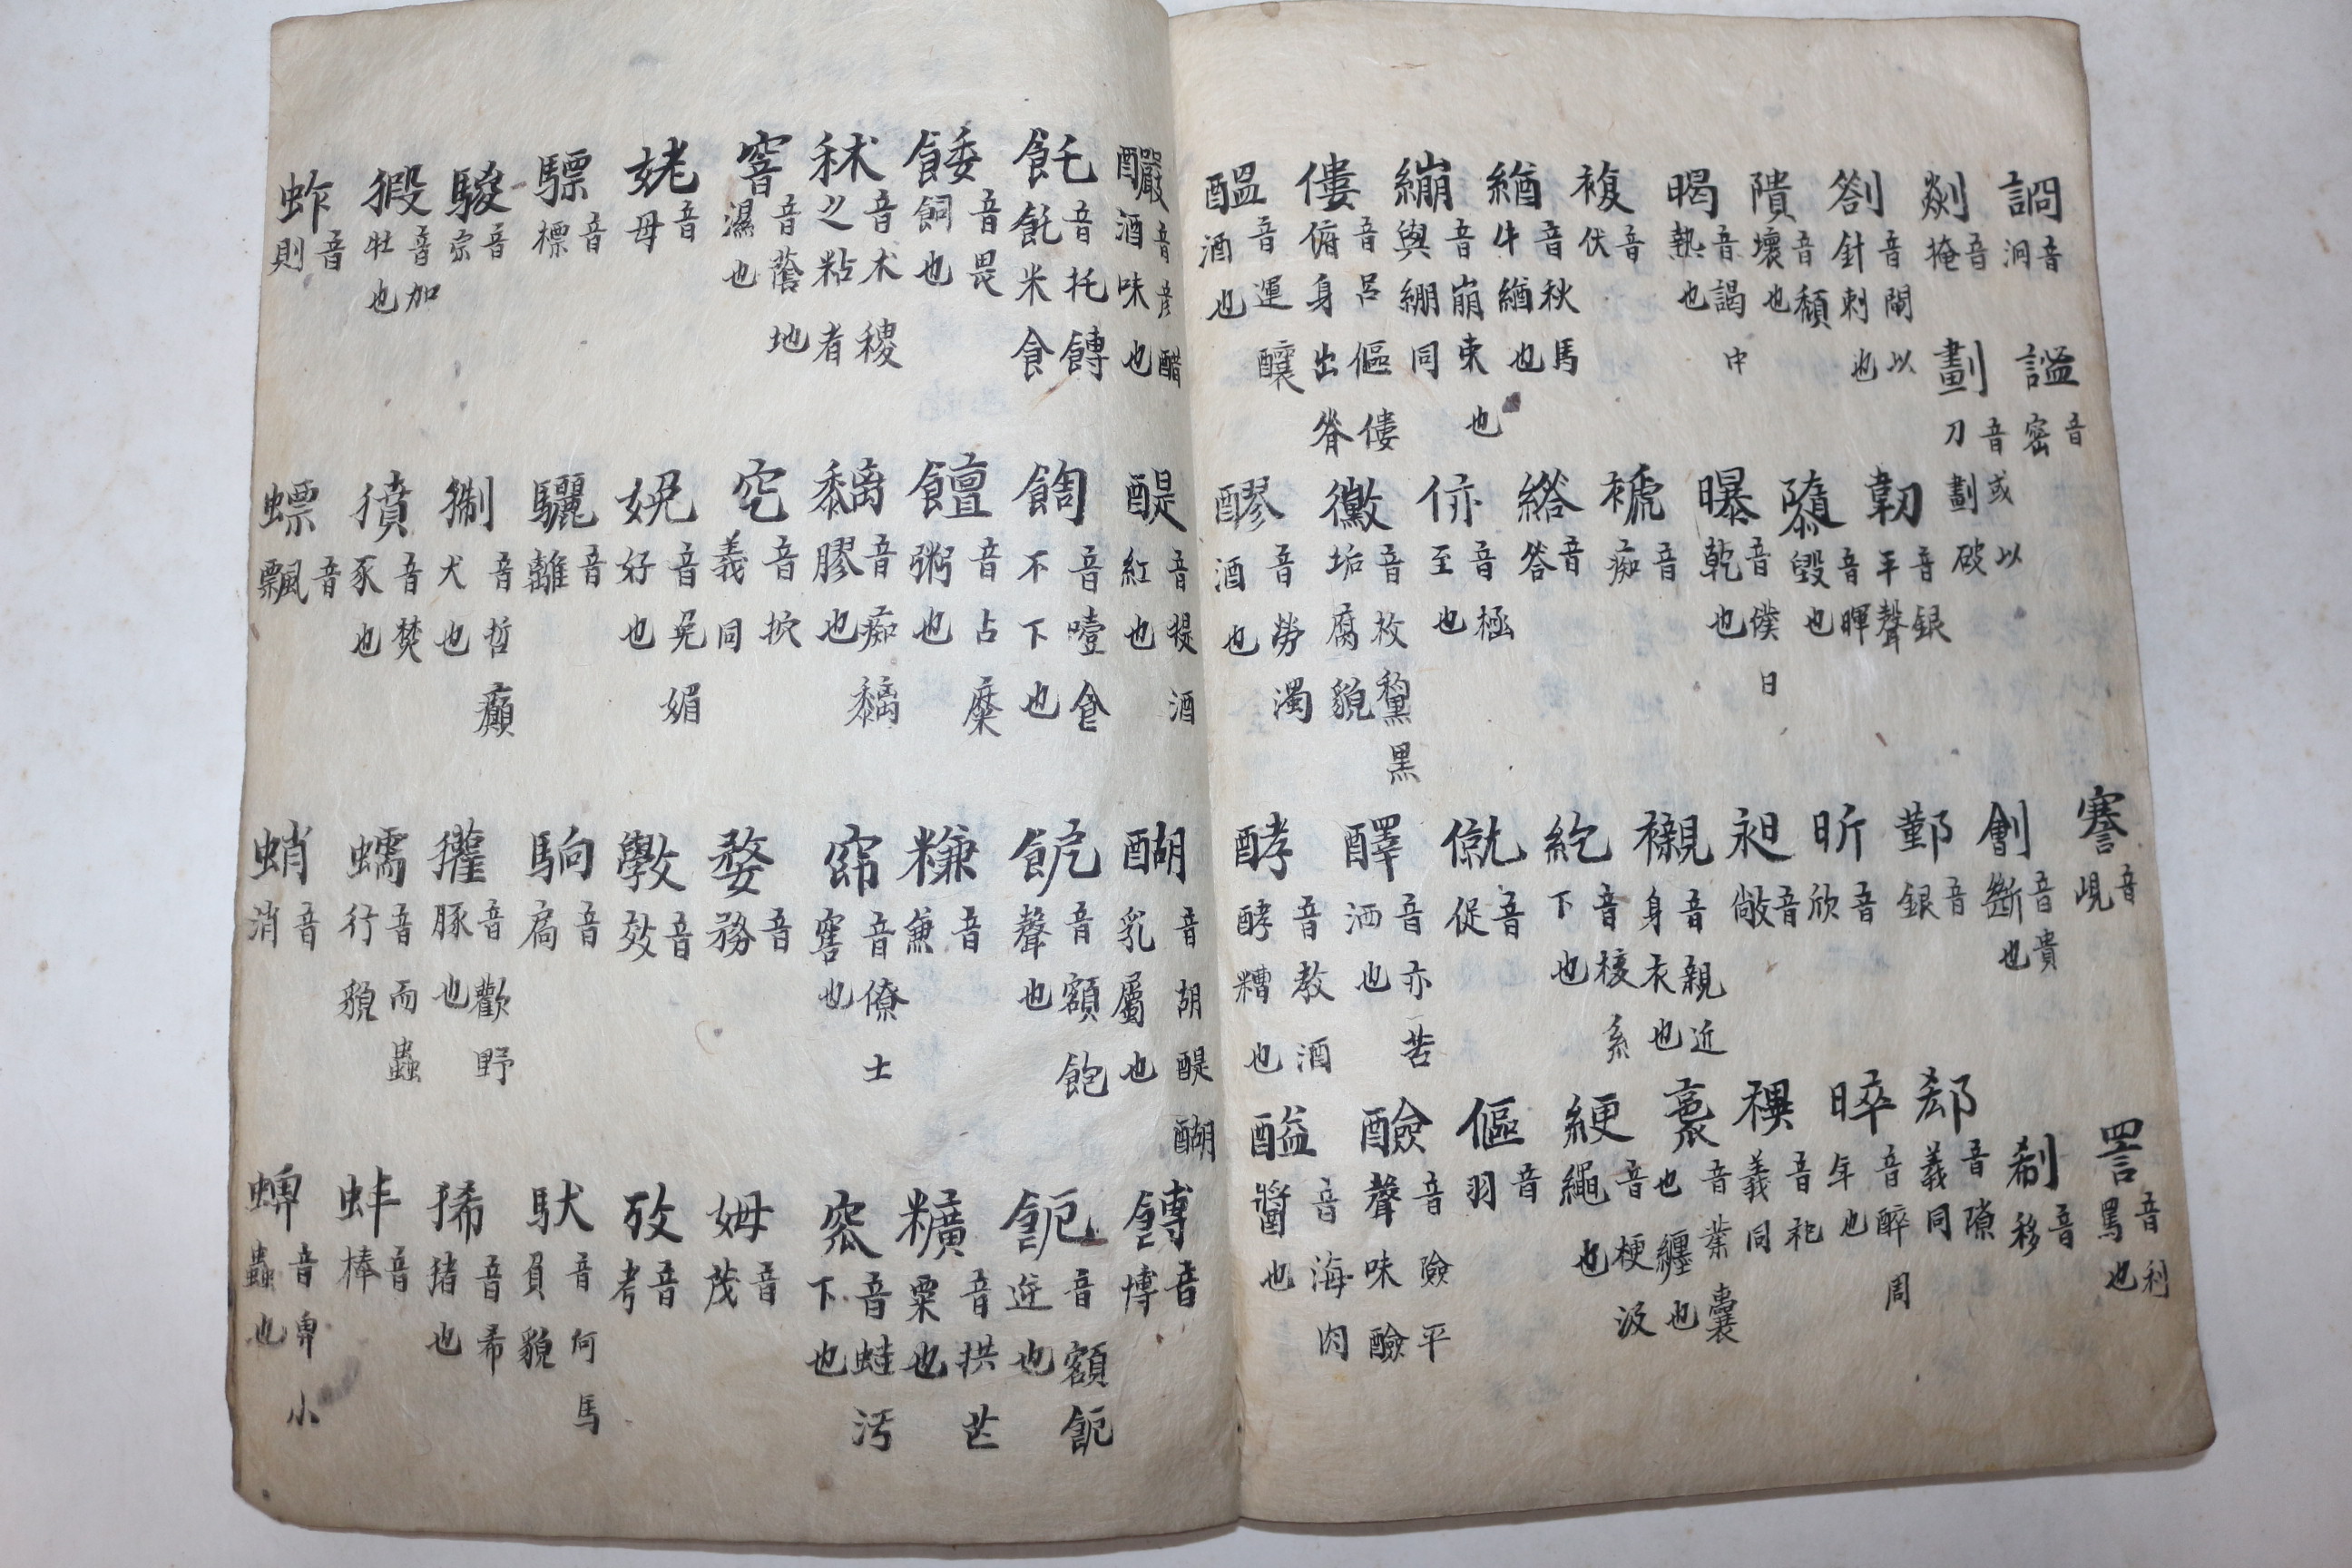 詷音洞 謚音密 謇音峴 詈音利罵也
剡音掩 劃音或以刀劃破 劊音貴斷也 剎音移
劄音閘以針刺也 韌音銀平聲 鄞音銀 郄音隙義同
隤音頹壞也 隳音暉毀也 昕音欣 晬音醉周年也
暍音謁中熱也 曝音僕日乾也 昶音敞 禩音祀義同
複音伏 褫音痴 襯音親近身衣也 裹音菓囊也纏也
緧音秋馬牛緧也 綹音咎 紇音核系下也 綆音梗汲繩也
繃音崩束也與綳同 㑊音極至也 僦音促 傴音羽
僂音呂傴僂俯身出脊 黴音枚黧黑垢腐貌 醳音亦苦洒也 醶音險平聲味醶
醞音運釀酒也 醪音勞濁酒也 酵音教酒酵糟也 醢音海肉醬也
釅音彦醋酒味也 醍音提酒紅也 醐音胡醍醐乳屬也 餺音博
飥音托餺飥米食 餇音噎食不下也 飢音額飽聲也 䭓音額䭓逆也
餧音畏飼也 饘音占糜粥也 糠音兼 穬音拱芒粟也
秫音术稷之粘者 黐音痴黐膠也 窷音僚土窖也 窊音蛙汚下也
窨音蔭地濕也 穵音挖義同 婺音務 姆音茂
姥音母 娩音免媚好也 斆音效 攷音考
驃音標 驪音離 駉音扃 馱音何馬負貌
駿音宗 猘音哲癲犬也 獾音歡野豚也 狶音希猪也
猳音加牡也 獖音焚豕也 蠕音而蟲行貌 蚌音棒
蚱音則 螵音飄 蛸音消 蜱音卑小蟲也